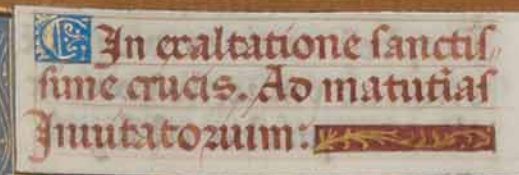 ¶ In exaltatione sanctis
sime crucis. Ad matutias
Inuitatorium: